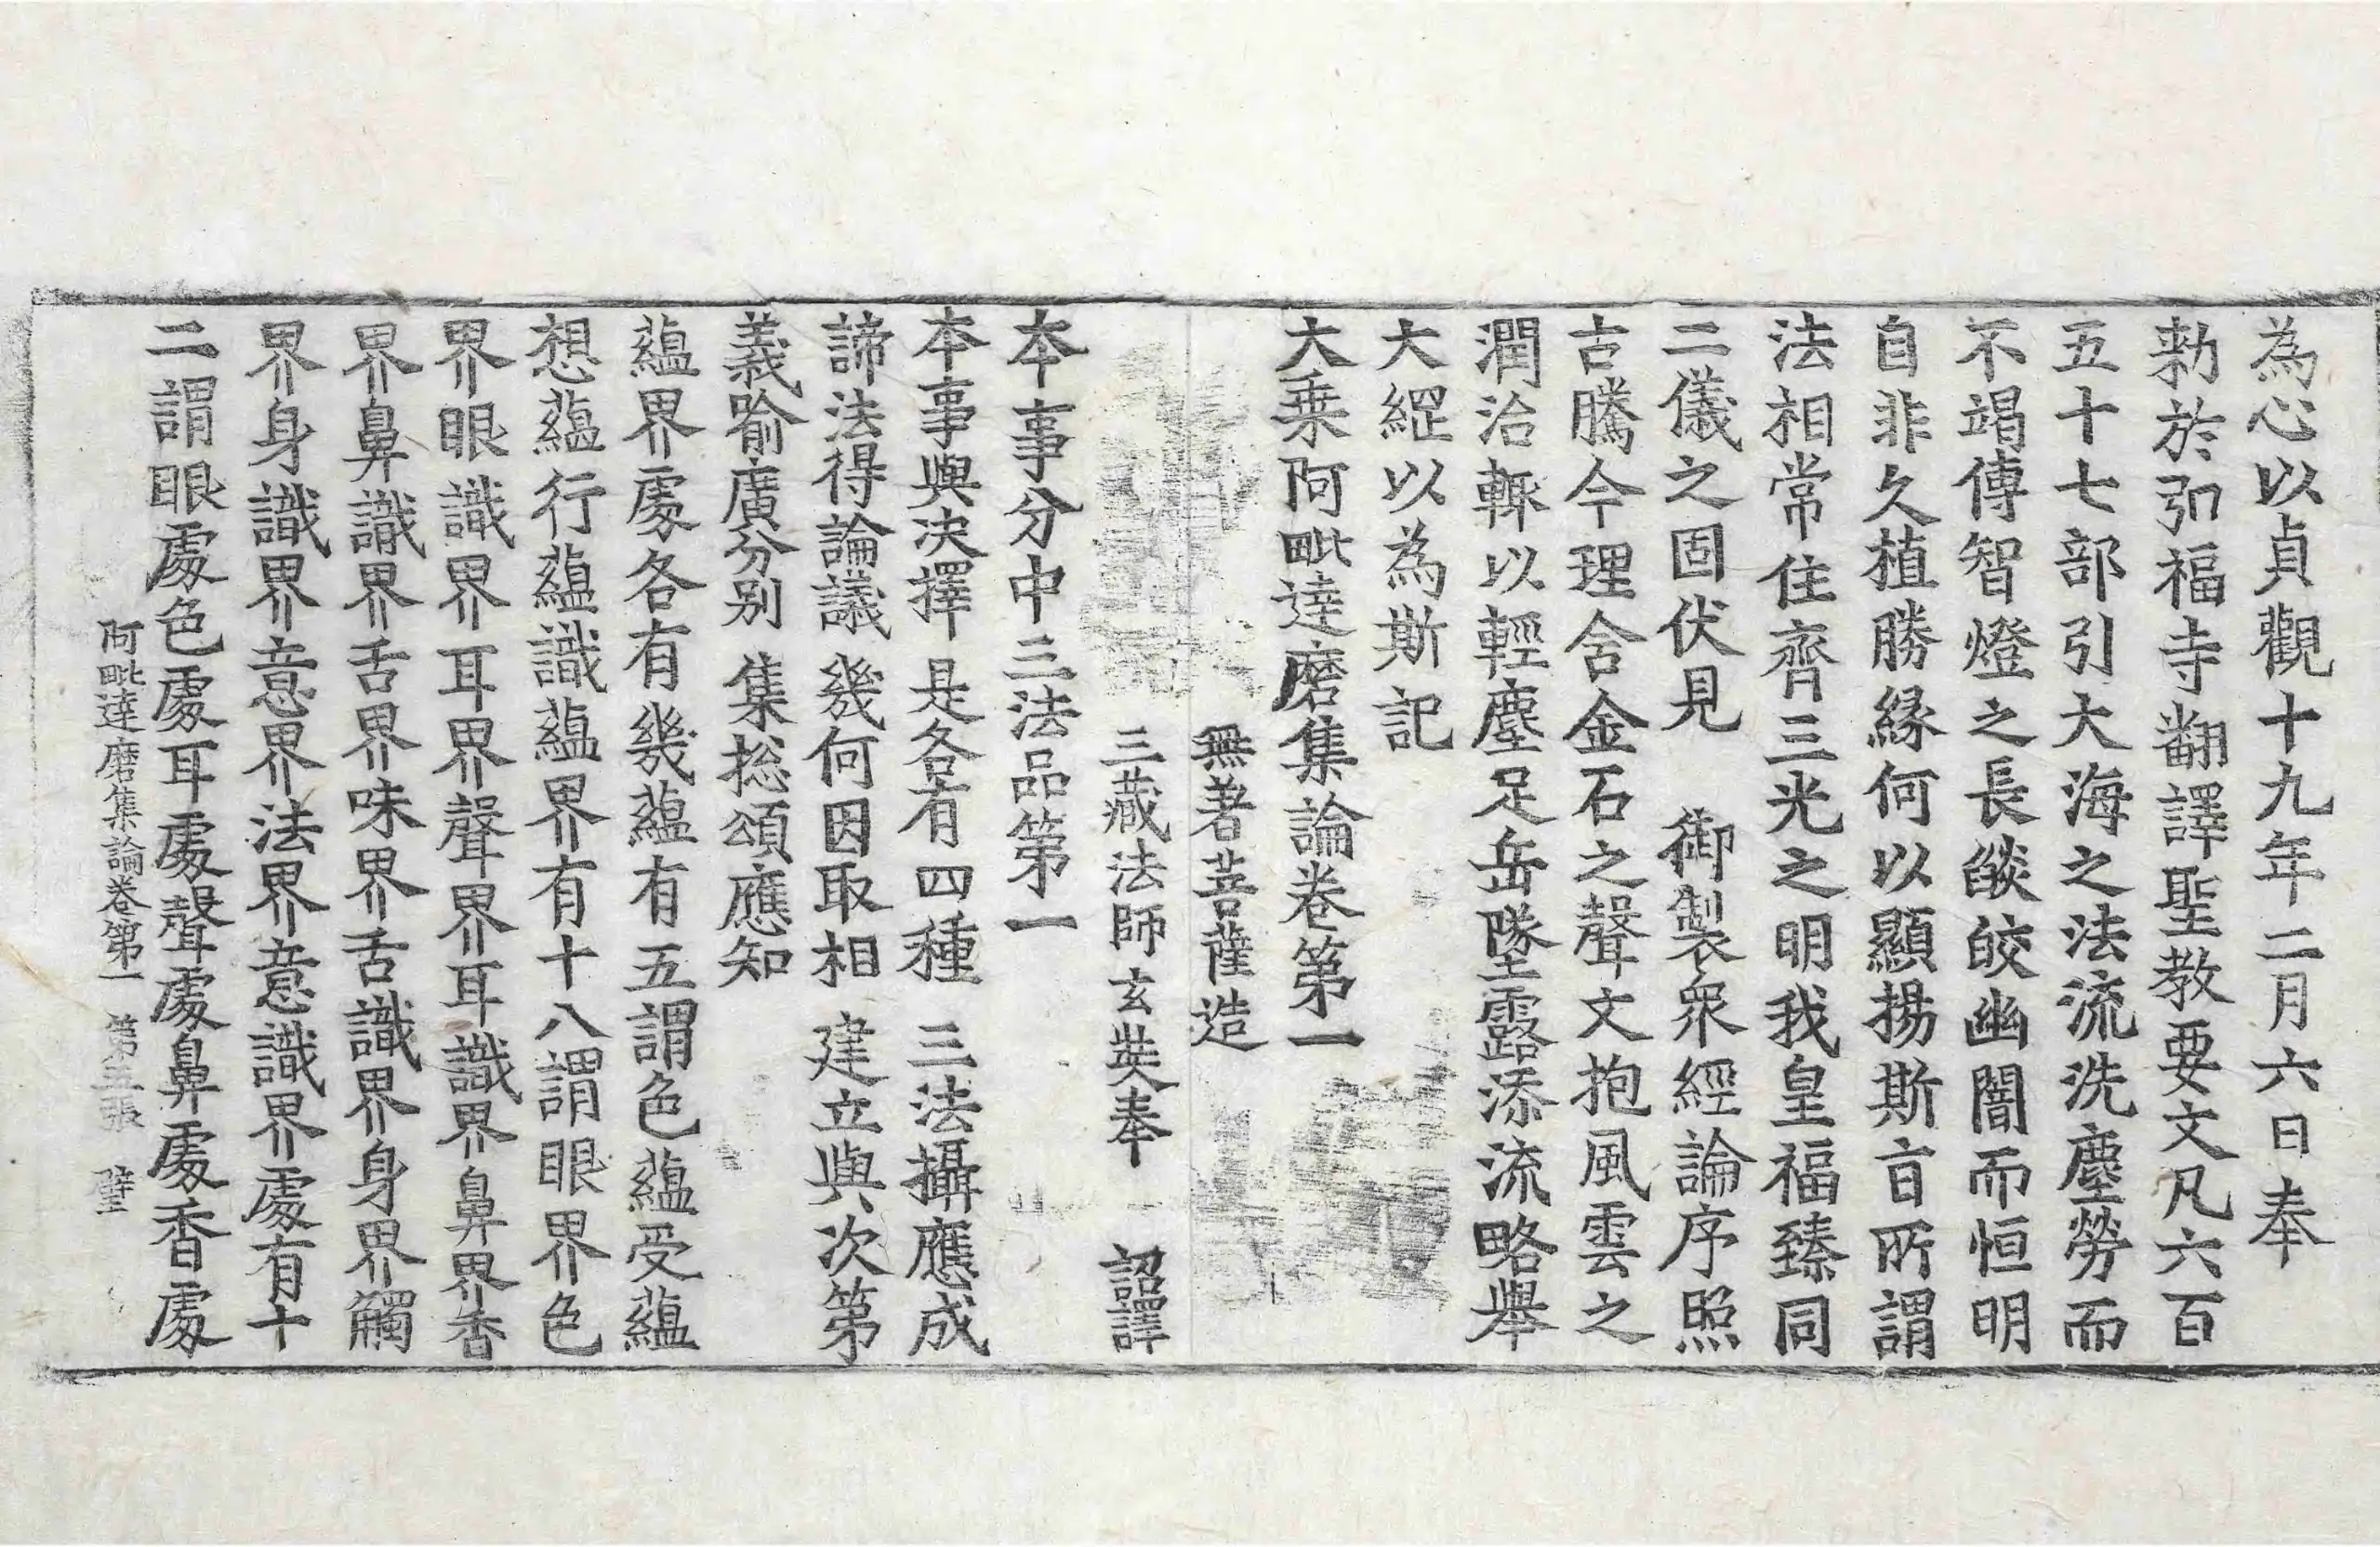 為心以貞觀十九年二月六日奉
勑於弘福寺翻譯聖教要文凡六百
五十七部引大海之法流洗塵勞而
不竭傳智燈之長燄皎幽闇而恒明
自非久植勝緣何以顯揚斯旨所謂
法相常住齊三光之明我皇福臻同
二儀之固伏見　御製衆經論序照
古騰今理含金石之聲文抱風雲之
潤治輙以輕塵足岳墜露添流略舉
大綱以為斯記
大乗阿毗達磨集論卷第一
無著菩薩造
三藏法師玄奘奉　詔譯
本事分中三法品第一
本事與决擇　是各有四種　三法攝應成
諦法得論議　幾何因取相　建立與次第
義喻廣分别　集捴頌應知
藴界處各有幾藴有五謂色藴受藴
想藴行藴識藴界有十八謂眼界色
界眼識界耳界聲界耳識界鼻界香
界鼻識界舌界味界舌識界身界觸
界身識界意界法界意識界處有十
二謂眼處色處耳處聲處鼻處香處
阿毗達磨集論卷第一　第五張　璧